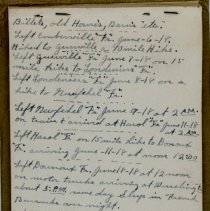 Billets, old Houses, Barns Etc.
Left Emberville Fr. June-6-18.
Hiked to Gunville 9 Mile Hike.
Left Gunville Fr June 7-18 on 15
mile hike to Londiniers Fr.
Left Londiniers Fr June 8-18 on a
hike to Neufchel Fr.
Left Neufchel Fr June 9-18 at 2 A.M.
on train & arrived at Harol Fr June 11-18
at 2 A.M.
Left Harol Fr on 15 mile hike to Domoux
Fr arriving June-11-18 at noon 12:00
Left Domoux Fr June 18-18 at 12 noon
on motor trucks arriving at
about 5 P.M. same day Slept in French
Barracks over night.